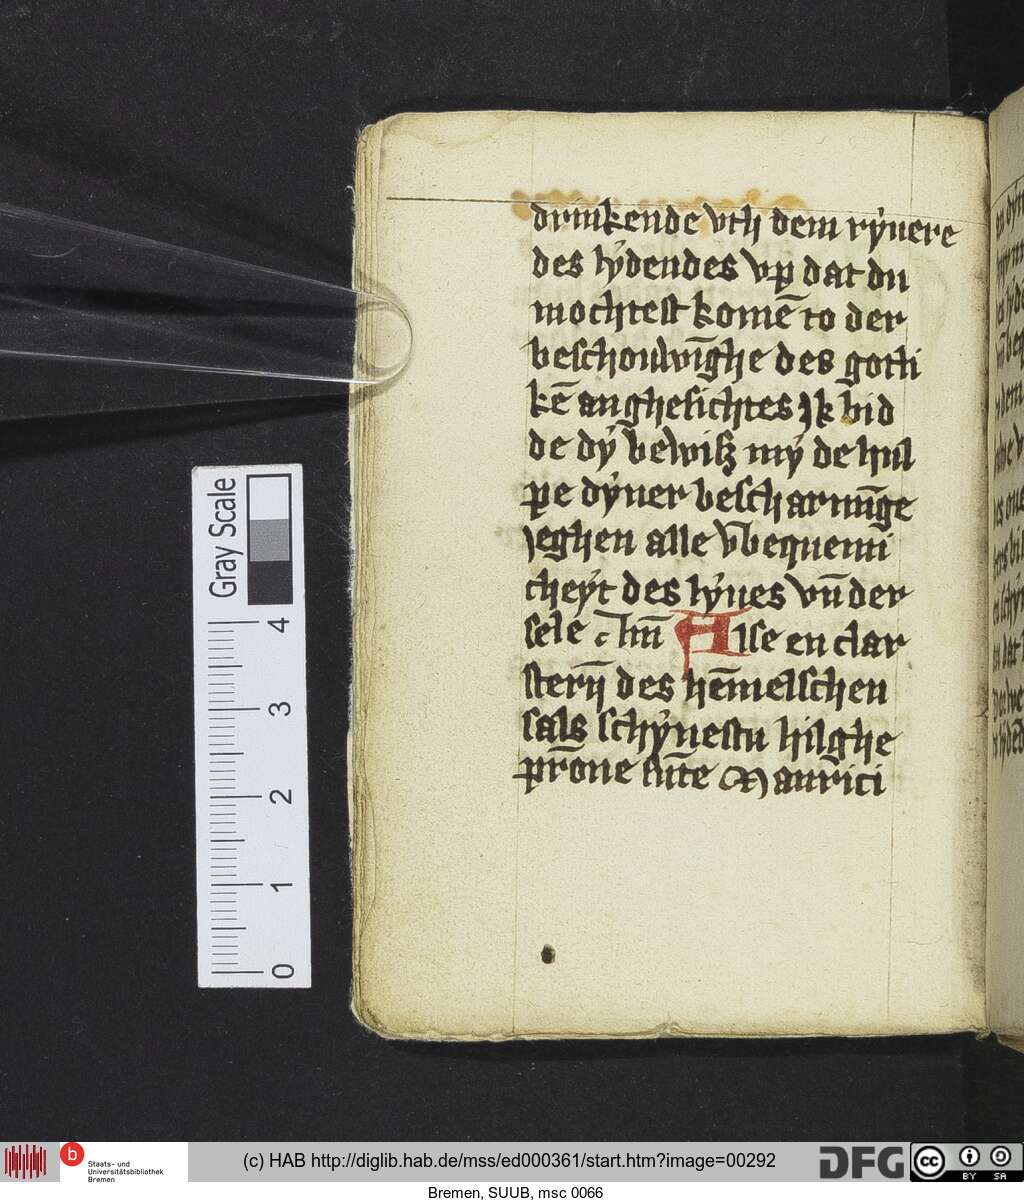 drinkende vth dem rẏuere
des lẏdendes vp dat du
mochtest komē to der
beschouwīghe des gotli
kē anghesichtes Jk bid
de dẏ bewiß mẏ de hul
pe dẏner bescharmīge
jeghen alle v̄bequemi
cheẏt des lẏues vn̄ der
sele Alse en clar
sterṅ des hēmelschen
sals schẏnestu hilghe
pr̄one sūte Maurici
Gray Scale
4
3
2
1
0
b
Staats- und
Universitätsbibliothek
Bremen
(c) HAB http://diglib.hab.de/mss/ed000361/start.htm?image=00292
DFG
cc
BY SA
Bremen, SUUB, msc 0066